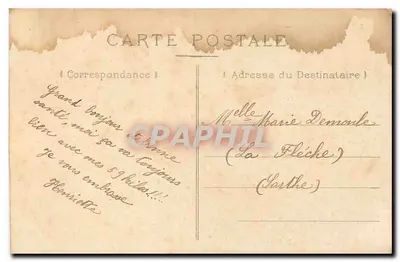 CARTE POSTALE
(Correspondance)
(Adresse du Destinataire)
Grand bonjour et bonne
santé, moi ça va toujours
bien avec mes 59 kilos!!!
je vous embrasse
Henriette
Melle Marie Demoule
(La Flèche)
(Sarthe)
CPAPHIL